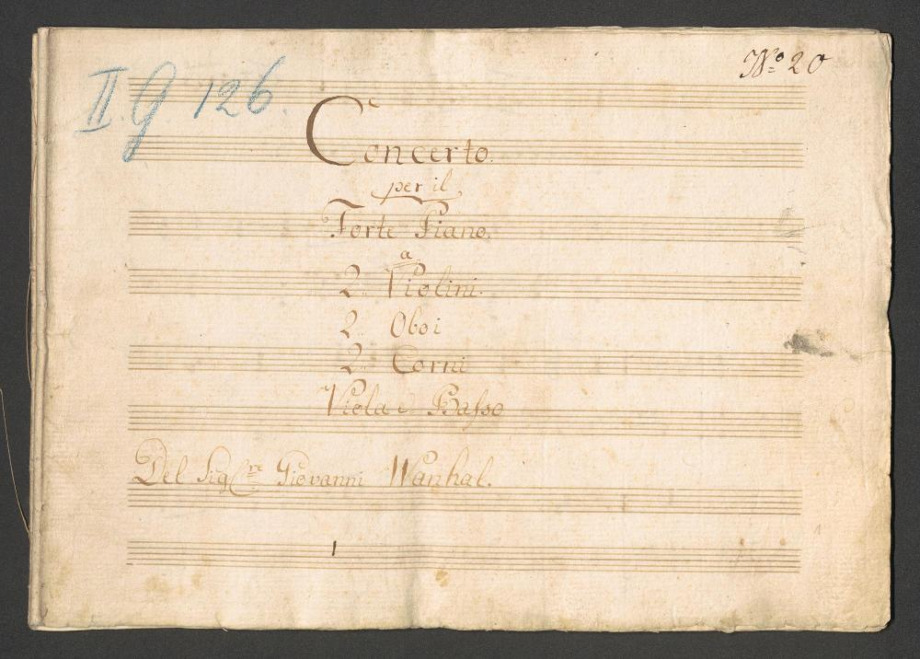 No 20
II. G 126.
Concerto.
per il
Forte Piano.
a
2 Violini.
2 Oboi
2 Corni
Viola e Basso
Del Sig:re Giovanni Wanhal.
1